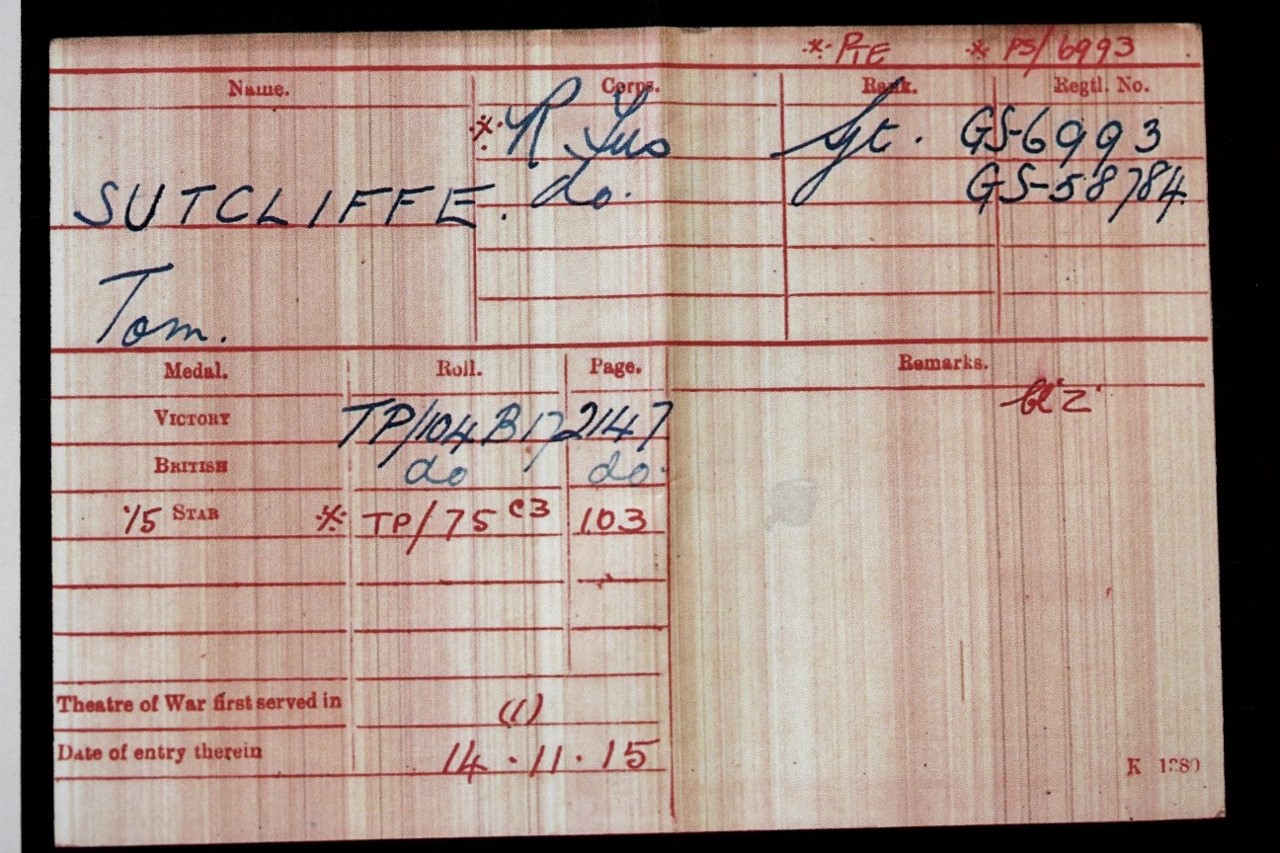 * PTE * PS/6993
Name. Corps. Rank. Regtl. No.
* R Fus Sgt. GS-6993
SUTCLIFFE. do. GS-58784
Tom.
Medal. Roll. Page. Remarks.
VICTORY TP/104 B17 2147
BRITISH do do.
'15 STAR * TP/75 C3 103
Theatre of War first served in (1)
Date of entry therein 14.11.15
K 1380